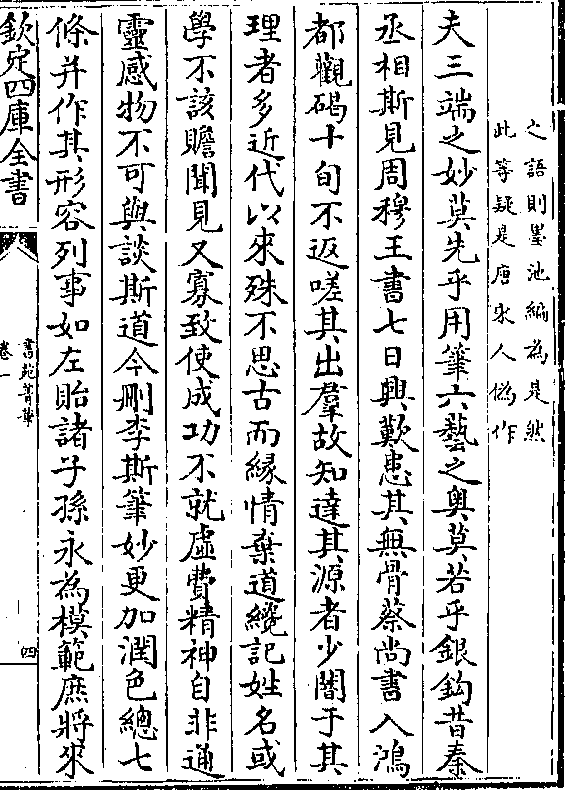 之語則墨池編為是然
此等疑是唐末人偽作
夫三端之妙莫先乎用筆六藝之奥莫若乎銀鈎昔秦
丞相斯見周穆王書七日興歎患其無骨蔡尚書入鴻
都觀碣十旬不返嗟其出羣故知達其源者少闇于其
理者多近代以來殊不思古而緣情棄道纔記姓名或
學不該贍聞見又寡致使成功不就虚費精神自非通
靈感物不可與談斯道今刪李斯筆妙更加潤色總七
條并作其形容列事如左貽諸子孫永為模範庶將來
欽定四庫全書
書苑菁華
卷一
四